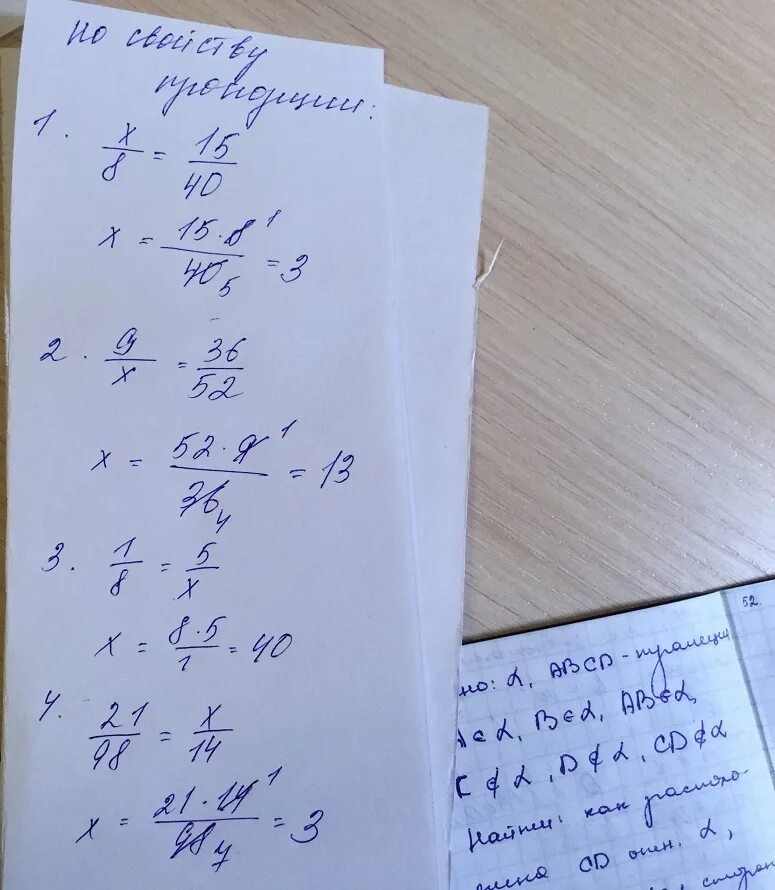 По свойству
пропорции:
1. x/8 = 15/40
x = 15·8 1/40 5 = 3
2. 9/x = 36/52
x = 52·9 1/36 4 = 13
3. 1/8 = 5/x
x = 8·5/1 = 40
4. 21/98 = x/14
x = 21·14 1/98 7 = 3
52.
но: α, ABCD - трапеция
A ∈ α, B ∈ α, AB ∈ α,
C ∉ α, D ∉ α, CD ∉ α
Найти: как располо-
жена CD отн. α,